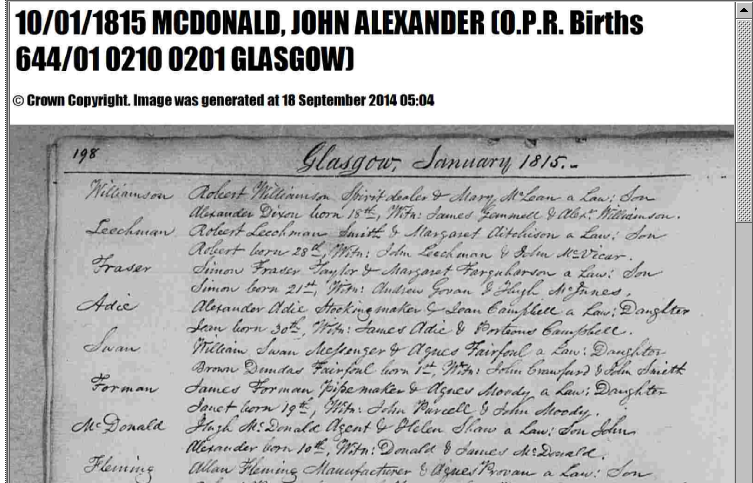 10/01/1815 MCDONALD, JOHN ALEXANDER (O.P.R. Births
644/01 0210 0201 GLASGOW)
© Crown Copyright. Image was generated at 18 September 2014 05:04
198
Glasgow, January 1815.-
Williamson Robert Williamson Spirit dealer & Mary McLean a Law: Son
Alexander Dixon born 18th, Witn: James Gemmell & Alexr. Williamson.
Leechman Robert Leechman Smith & Margaret Aitchison a Law: Son
Robert born 28th, Witn: John Leechman & John McVicar.
Fraser Simon Fraser Taylor & Margaret Farquharson a Law: Son
Simon born 21st, Witn: Andrew Govan & Hugh McInnes.
Adie Alexander Adie Stockingmaker & Jean Campbell a Law: Daughter
Jean born 30th, Witn: James Adie & Porteous Campbell.
Swan William Swan Messenger & Agnes Fairfoul a Law: Daughter
Brown Dundas Fairfoul born 1st, Witn: John Craufurd & John Smith
Forman James Forman pipemaker & Agnes Moody a Law: Daughter
Janet born 19th, Witn: John Purcell & John Moody.
McDonald Hugh McDonald Agent & Helen Shaw a Law: Son John
Alexander born 10th, Witn: Donald & James McDonald.
Fleming Allan Fleming Manufacturer & Agnes Provan a Law: Son